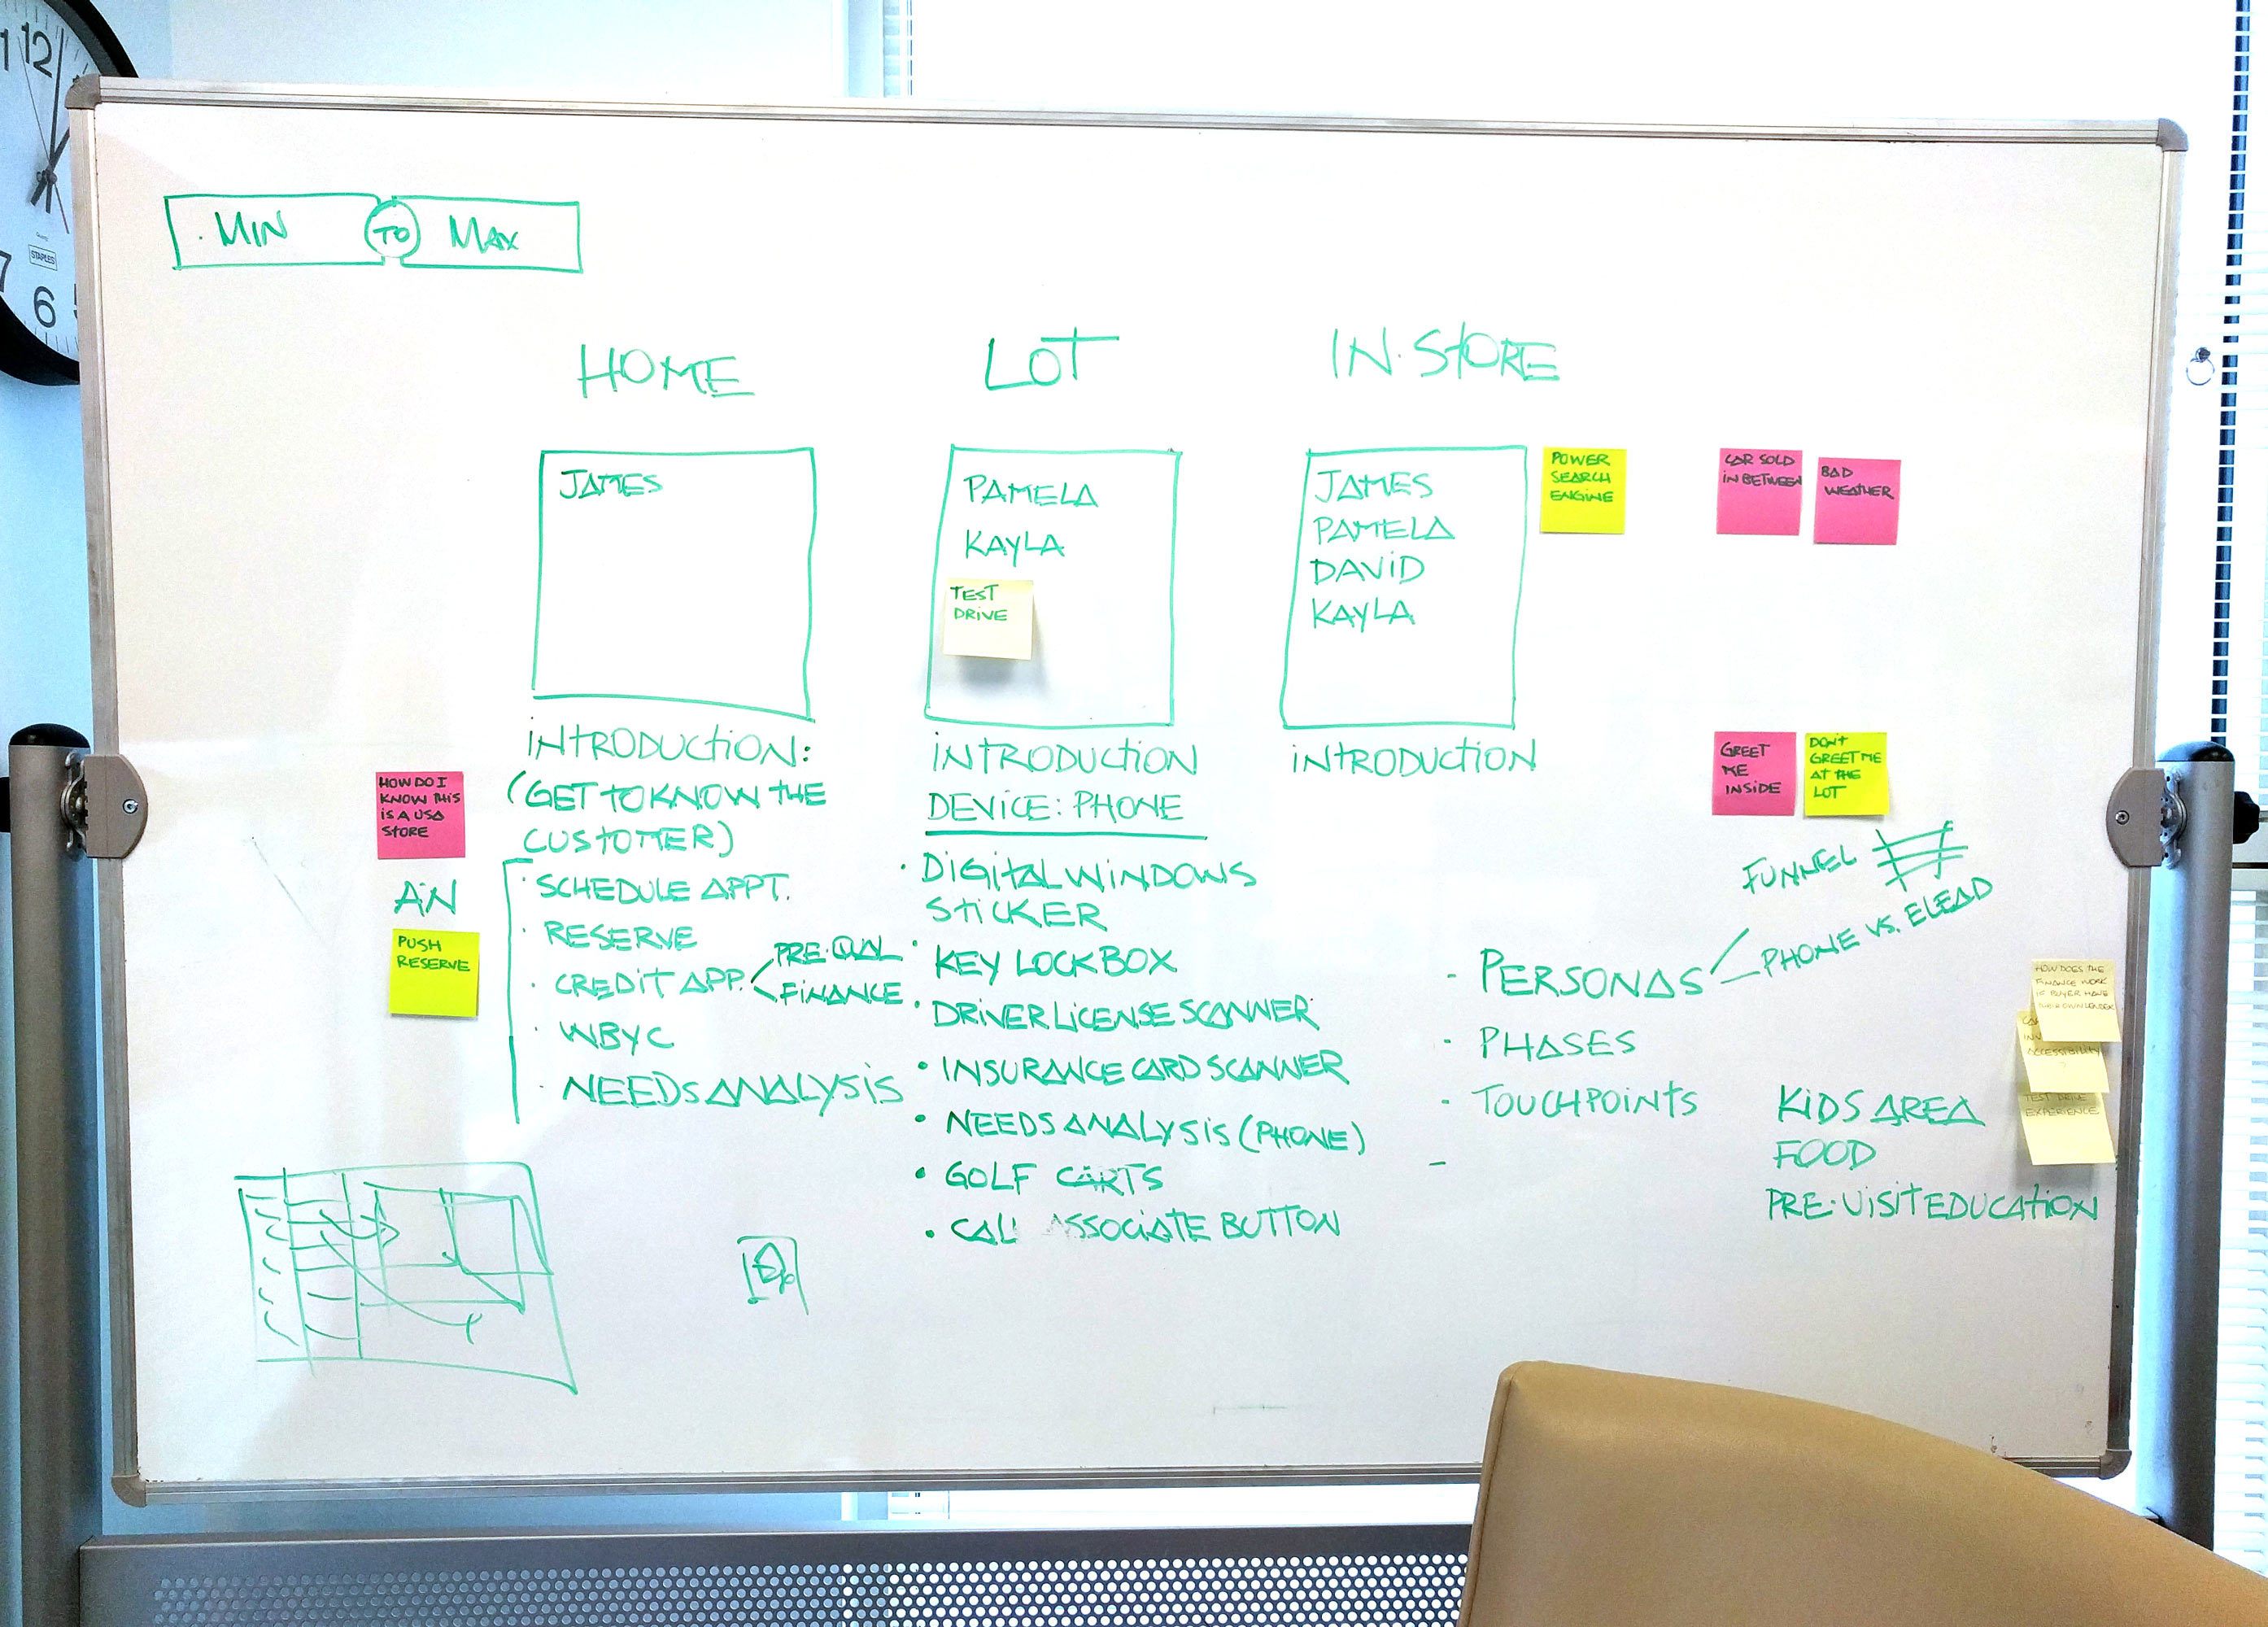 12
1
7
6
STAPLES
MIN TO MAX
HOME
LOT
IN STORE
JAMES
PAMELA
KAYLA
TEST
DRIVE
JAMES
PAMELA
DAVID
KAYLA
POWER
SEARCH
ENGINE
CAR SOLD
IN BETWEEN
BAD
WEATHER
INTRODUCTION:
(GET TO KNOW THE
CUSTOMER)
SCHEDULE APPT.
RESERVE
CREDIT APP. PRE-QUAL
FINANCE
WBYC
NEEDS ANALYSIS
HOW DO I
KNOW THIS
IS A USA
STORE
AN
PUSH
RESERVE
INTRODUCTION
DEVICE: PHONE
• DIGITAL WINDOWS
STICKER
• KEY LOCK BOX
• DRIVER LICENSE SCANNER
• INSURANCE CARD SCANNER
• NEEDS ANALYSIS (PHONE)
• GOLF CARTS
• CALL ASSOCIATE BUTTON
INTRODUCTION
GREET
ME
INSIDE
DON'T
GREET ME
AT THE
LOT
FUNNEL
PHONE VS. ELEAD
- PERSONAS
- PHASES
- TOUCHPOINTS
-
KIDS AREA
FOOD
PRE-VISIT EDUCATION
HOW DOES THE
FINANCE WORK
IF BUYER HAVE
THEIR OWN LENDER
ACCESSIBILITY
TEST DRIVE
EXPERIENCE